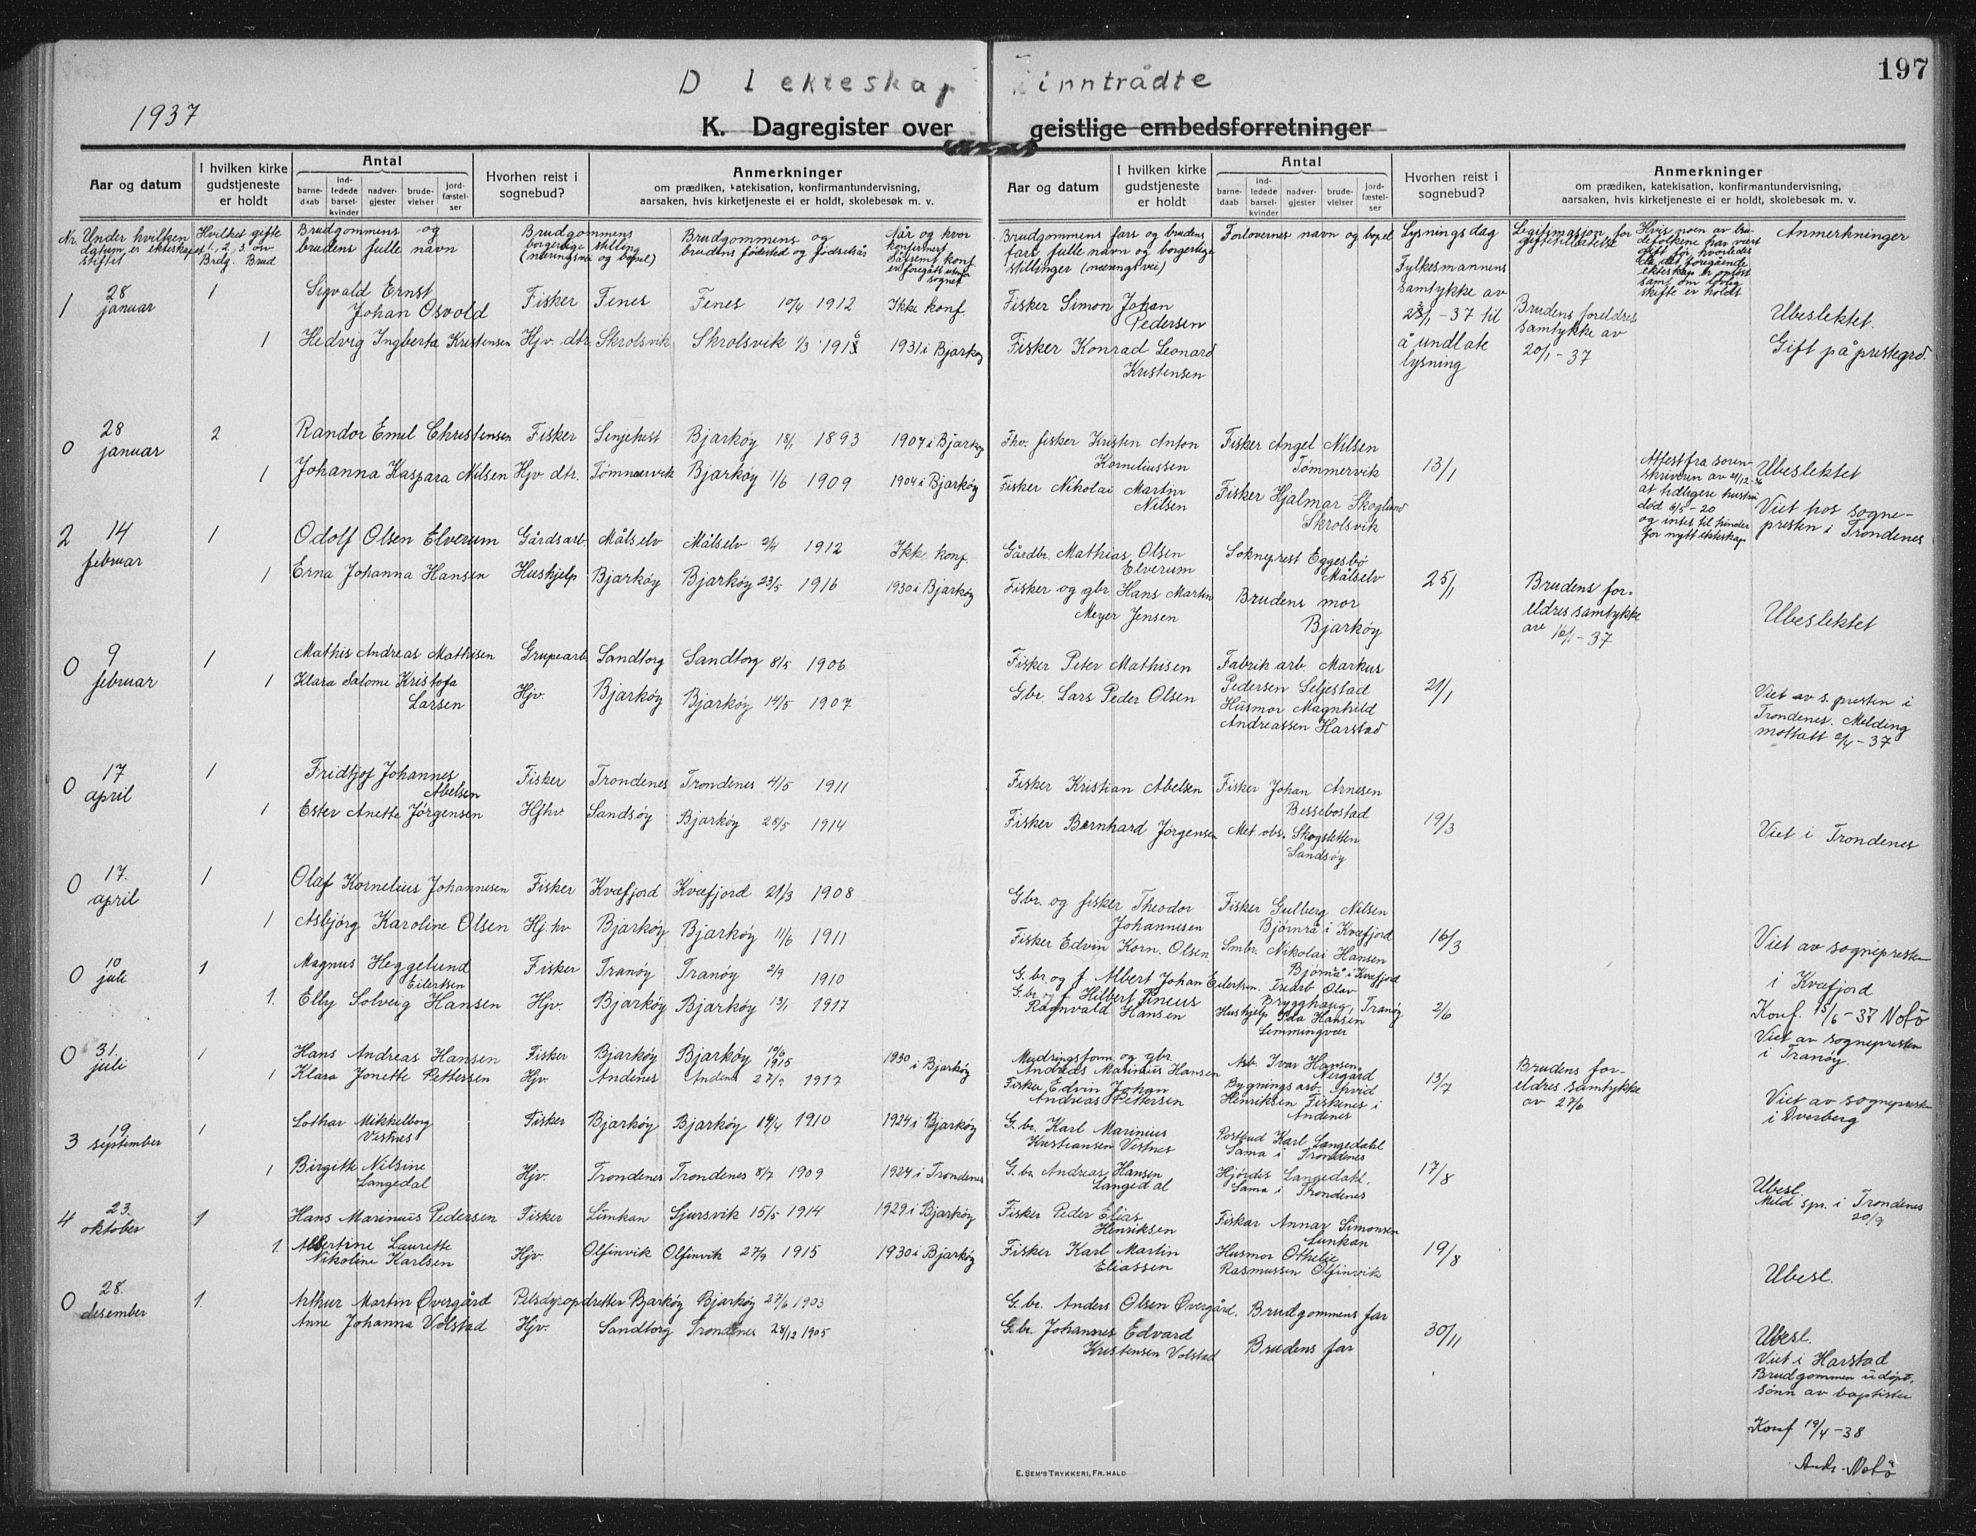 197
D I ekteskap inntrådte
1937
K. Dagregister over geistlige embedsforretninger
Aar og datum
I hvilken kirke gudstjeneste er holdt
Antal
barnedaab
indledede barselkvinder
nadvergjester
brudevielser
jordfæstelser
Hvorhen reist i sognebud?
Anmerkninger
om prædiken, katekisation, konfirmantundervisning,
aarsaken, hvis kirketjeneste ei er holdt, skolebesøk m. v.
Aar og datum
I hvilken kirke gudstjeneste er holdt
Antal
barnedaab
indledede barselkvinder
nadvergjester
brudevielser
jordfæstelser
Hvorhen reist i sognebud?
Anmerkninger
om prædiken, katekisation, konfirmantundervisning,
aarsaken, hvis kirketjeneste ei er holdt, skolebesøk m. v.
Nr. Under hvilken datum er ekteskapet stiftet
Hvilket gifte 1, 2, 3 o.v. Brdg. Brud
Brudgommens og brudens fulle navn
Brudgommens borgerlige stilling (næringsvei og bopel)
Brudgommens og brudens fødested og fødselsår
Når og hvor konfirmert
Brudgommens fars og brudens fars fulle navn og borgerlige stillinger (næringsvei)
Forlovernes navn og bopel
Lysningsdag
Legitimasjon for giftetillatelse
Anmerkninger
1 28 januar 1 Sigvald Ernst Johan Osvold Fisker Fenes Fenes 10/4 1912 Ikke konf. Fisker Simon Johan Pedersen
Fylkesmannens samtykke av 23/1-37 til å undlate lysning
Brudens foreldres samtykke av 20/1-37
Ubeslektet.
1 Hedvig Ingberta Kristensen Hjv. dtr. Skrolsvik Skrolsvik 1/3 1931 i Bjarkøy Fisker Konrad Leonard Kristensen
Gift på prestegrd.
0 28 januar 2 Randor Emil Christensen Fisker Senjehest Bjarkøy 18/1 1893 1907 i Bjarkøy Fhv. fisker Kristen Anton Korneliussen Fisker Angel Nilsen Tømmervik
1 Johanna Kaspara Nilsen Hjv dtr. Tømmervik Bjarkøy 1/6 1909 1904 i Bjarkøy Fisker Nikolai Martin Nilsen Fisker Hjalmar Skoglund Skrolsvik 13/1
Attest fra sorenskriveren av 21/12-36 at tidligere hustru død 6/5-20 og intet til hinder for nytt ekteskap
Ubeslektet
Viet hos sognepresten i Trondenes
2 14 februar 1 Odolf Olsen Elverum Gårdsarb Målselv Målselv 2/4 1912 Ikk. konf. Gårdbr. Mathias Olsen Elverum Sokneprest Eggesbø Målselv
1 Erna Johanna Hansen Hushjelp Bjarkøy Bjarkøy 23/5 1916 1930 i Bjarkøy Fisker og gbr. Hans Martin Meyer Jensen Brudens mor Bjarkøy 25/1
Brudens foreldres samtykke av 16/1-37
Ubeslektet
0 9 februar 1 Mathis Andreas Mathisen Grupearb Sandtorg Sandtorg 8/5 1906 Fisker Peter Mathisen Fabrik arb Markus Pedersen Seljestad
1 Klara Salome Kristofa Larsen Hjv. Bjarkøy Bjarkøy 14/5 1907 Gbr. Lars Peder Olsen Husmor Magnhild Andreassen Harstad 21/1
Viet av s. presten i Trondenes. Melding mottatt 2/4-37
0 17 april 1 Fridtjof Johannes Abelsen Fisker Trondenes Trondenes 4/5 1911 Fisker Kristian Abelsen Fisker Johan Arnesen Bessebostad
1 Ester Anette Jørgensen Hjhv. Sandsøy Bjarkøy 28/5 1914 Fisker Bernhard Jørgensen Met. obs. Skogsletten Sandsøy 19/3
Viet i Trondenes
0 17. april 1 Olaf Kornelius Johannesen Fisker Kvæfjord Kvæfjord 21/3 1908 Gbr. og fisker Theodor Johannesen Fisker Gulberg Nilsen Bjørnrå i Kvæfjord
1 Asbjørg Karoline Olsen Hj.hv Bjarkøy Bjarkøy 11/6 1911 Fisker Edvin Korn. Olsen Smbr. Nikolai Hansen Bjørnrå i Kvæfjord 16/3
Viet av sognepresten i Kvæfjord
0 10 juli 1 Magnus Heggelund Eilertsen Fisker Tranøy Tranøy 2/9 1910 G. br og f. Albert Johan Eilertsen. Olav Brygghaug, Tranøy
1. Elly Solveig Hansen Hjv. Bjarkøy Bjarkøy 13/1 1917 G. br. og f Hilbert Pineus Ragnvald Hansen Hushjelp Ida Hansen Lemmingvær 2/6
Konf. 15/6-37 Notø
Viet av sognepresten i Tranøy
0 31. juli 1 Hans Andreas Hansen Fisker Bjarkøy Bjarkøy 19/6 1915 1930 i Bjarkøy og gbr. Andreas Marinius Hansen Arb. Ivar Hansen Nergård
1 Klara Jonette Pettersen Hjv. Andenes Andenes 27/9 1917 Fisker Edvin Johan Andreas Pettersen Bygnings arb. Arvid Henriksen Fiskenes i Andenes 13/7
Brudens foreldres samtykke av 27/6
Viet av sognepresten i Dverberg
3 19 september 1 Lothar Mikkelborg Vestnes Fisker Bjarkøy Bjarkøy 14/4 1910 1924 i Bjarkøy G. br. Karl Marinius Kristiansen Vestnes Postbud Karl Langedahl Sama i Trondenes
1 Birgitte Nilsine Langedal Hjv. Trondenes Trondenes 8/7 1909 1924 i Trondenes G. br. Andreas Hansen Langedal Hjørdis Langedahl. Sama i Trondenes 17/8
Ubesl.
Meld spr. i Trondenes 20/9
4 23. oktober 1 Hans Marinius Pedersen Fisker Lunkan Sjursvik 15/5 1914 1929 i Bjarkøy Fisker Peder Elias Henriksen Fisker Annar Simonsen Lunkan
1. Albertine Laurette Nikoline Karlsen Hjv. Olfinvik Olfinvik 27/9 1915 1930 i Bjarkøy Fisker Karl Martin Eliassen Husmor Othelie Rasmussen Olfinvik 19/8
Ubesl.
0 28. desember 1. Arthur Martin Øvergård Pelsdyropdretter Bjarkøy Bjarkøy 27/6 1903 G. br. Anders Olsen Øvergård. Brudgommens far
Anne Johanna Volstad Hjv. Sandtorg Trondenes 28/12 1905 G. br. Johannes Edvard Kristensen Volstad Brudens far 30/11
Ubesl.
Viet i Harstad
Brudgommen udøpt, sønn av baptister
Konf 19/4-38
Notø
E. SEM'S TRYKKERI, FR. HALD